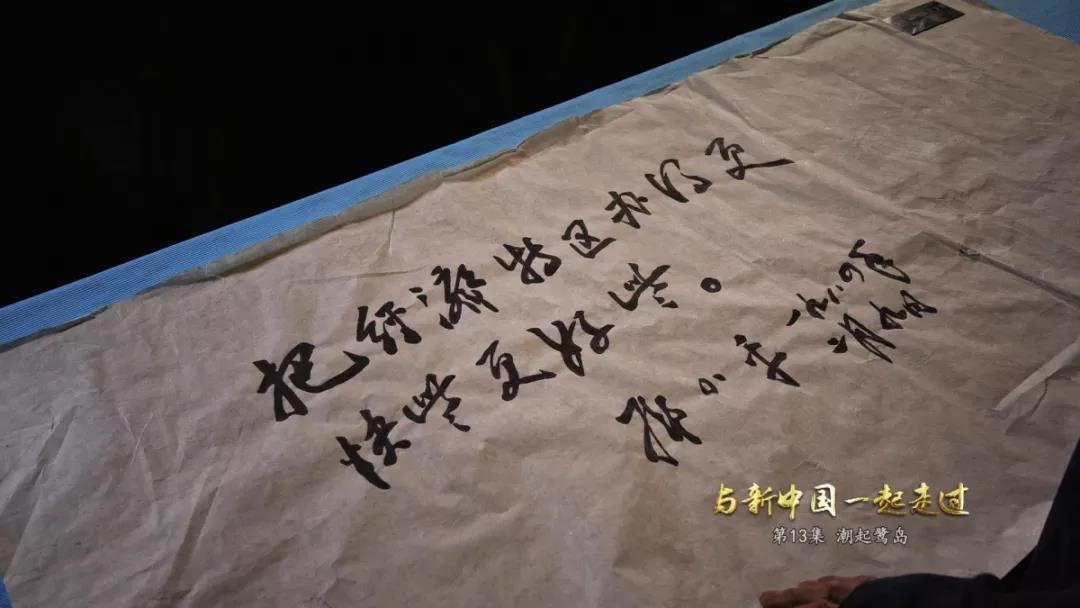 把经济特区办得更
快些更好些。
邓小平 一九八四年
二月九日
与新中国一起走过
第13集 潮起鹭岛